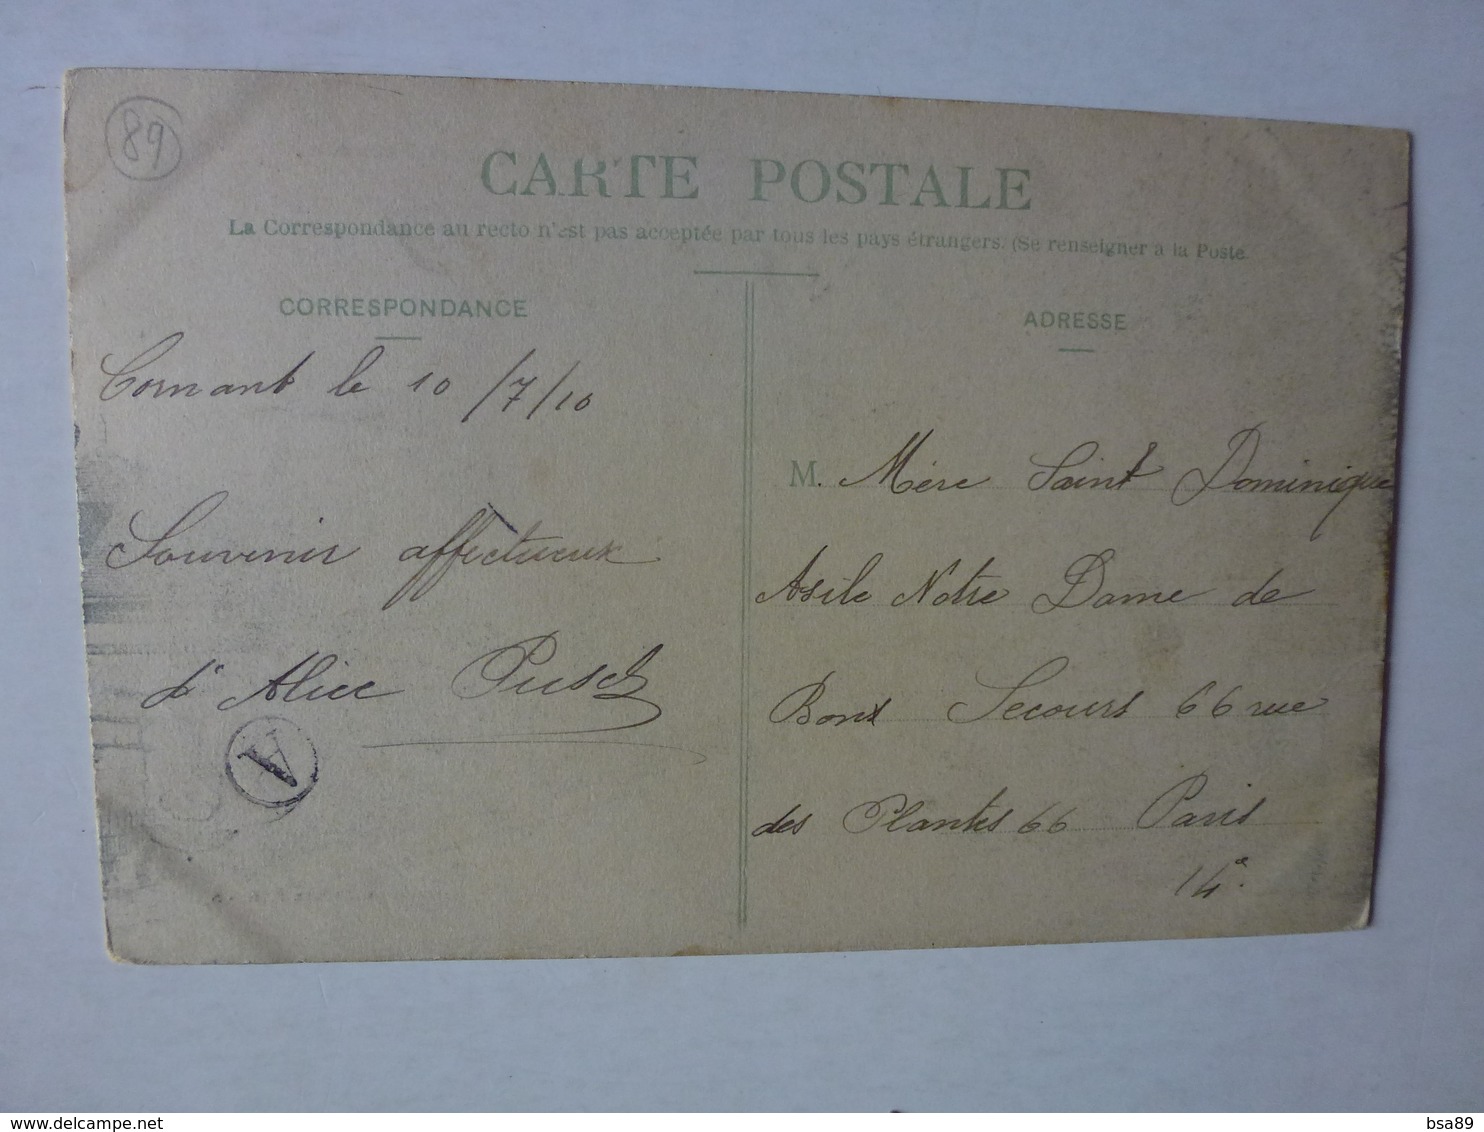 89
CARTE POSTALE
La Correspondance au recto n'est pas acceptée par tous les pays étrangers. (Se renseigner à la Poste
CORRESPONDANCE
Cornant le 10/7/10
Souvenir affectueux
d'Alice Pusch
A
ADRESSE
M. Mère Saint Dominique
Asile Notre Dame de
Bons Secours 66 rue
des Plantes 66 Paris
14e
delcampe.net
bsa89